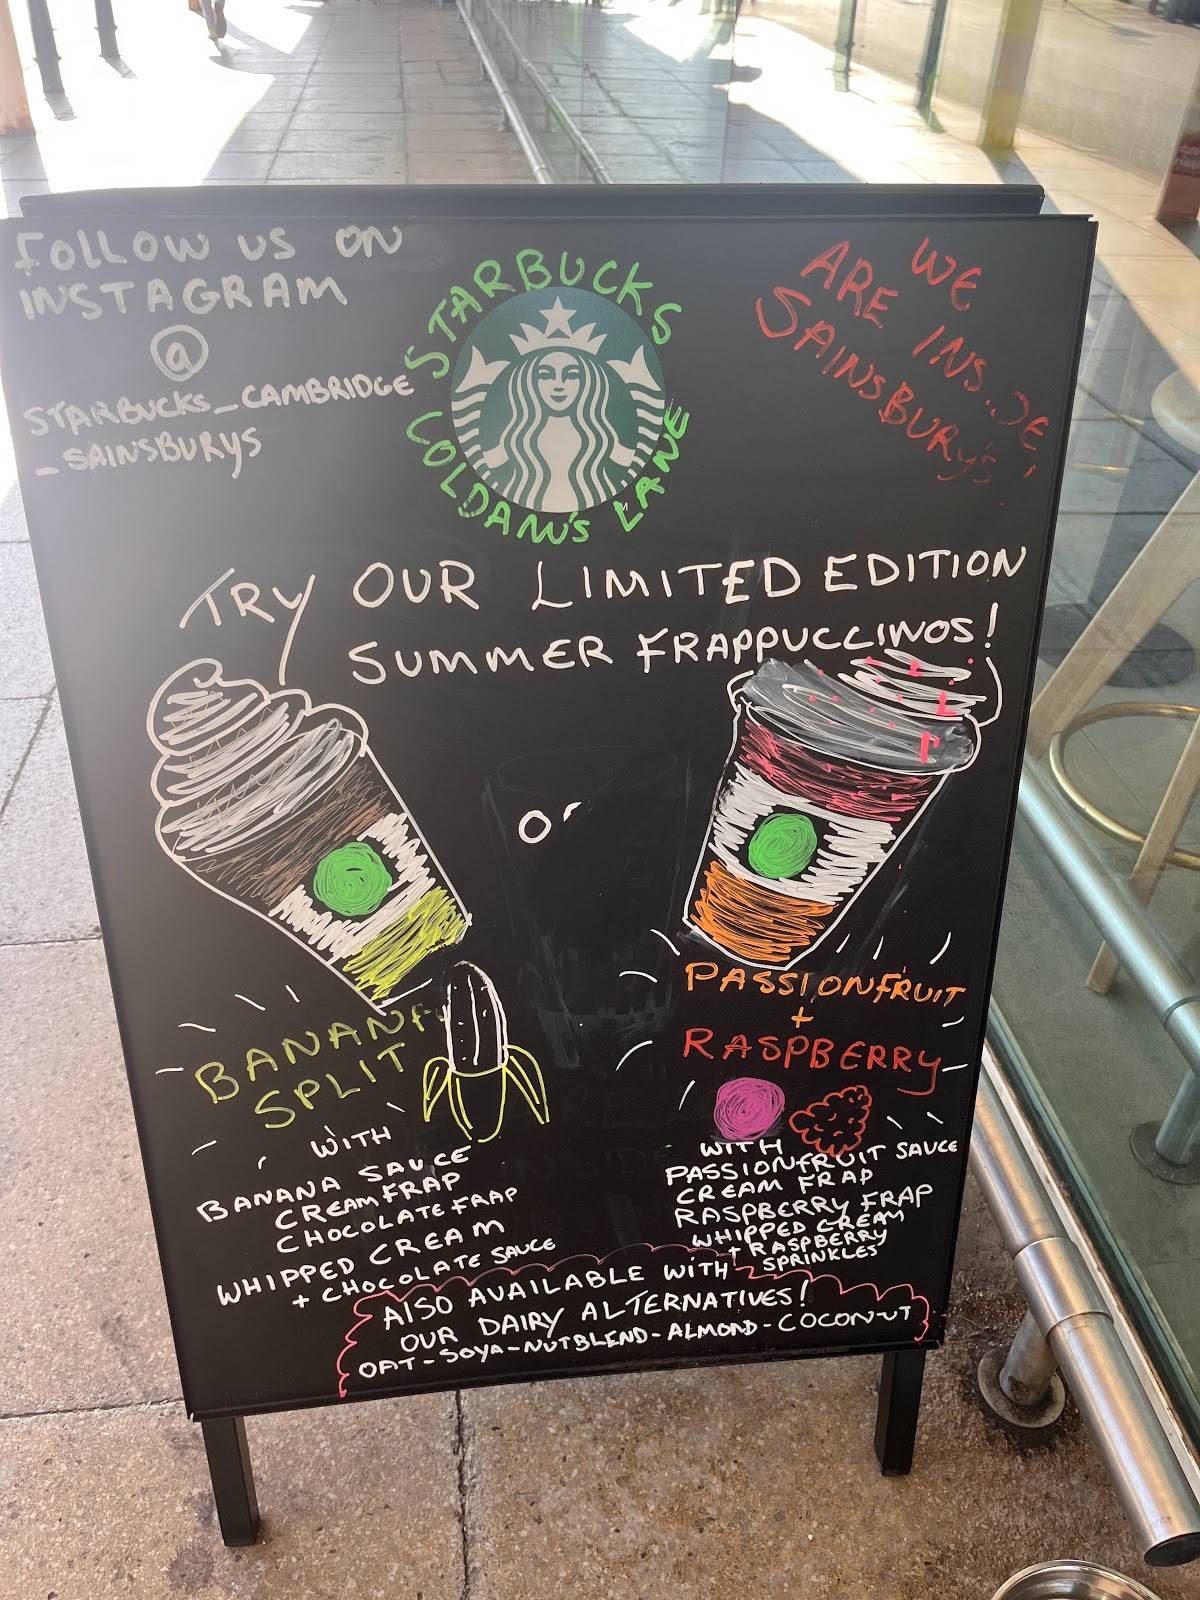 FOLLOW US ON
INSTAGRAM
@
STARBUCKS_CAMBRIDGE
_SAINSBURYS
STARBUCKS
COLDAM'S LANE
WE
ARE INSIDE
SAINSBURY'S!
TRY OUR LIMITED EDITION
SUMMER FRAPPUCCINOS!
Or
BANANA
SPLIT
WITH
BANANA SAUCE
CREAM FRAP
CHOCOLATE FRAP
WHIPPED CREAM
+ CHOCOLATE SAUCE
PASSIONFRUIT
+
RASPBERRY
WITH
PASSIONFRUIT SAUCE
CREAM FRAP
RASPBERRY FRAP
WHIPPED CREAM
+ RASPBERRY
SPRINKLES
ALSO AVAILABLE WITH
OUR DAIRY ALTERNATIVES!
OAT-SOYA-NUTBLEND-ALMOND-COCONUT